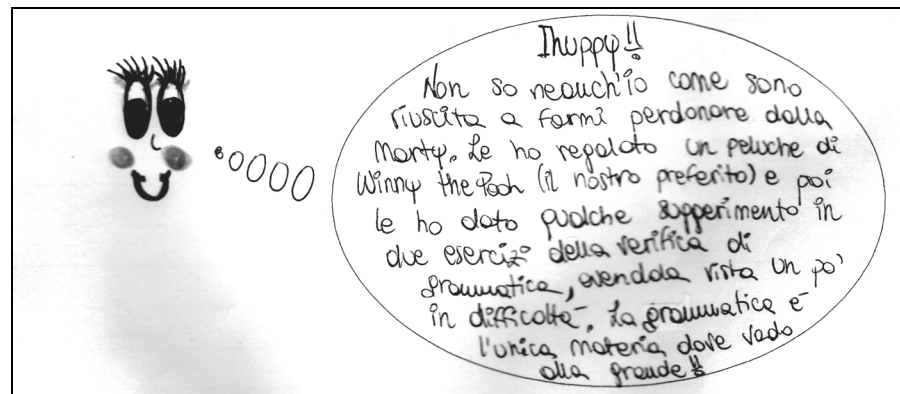 Ihuppy!!
Non so neanch'io come sono
riuscita a farmi perdonare dalla
Marty. Le ho regalato un peluche di
Winny the Pooh (il nostro preferito) e poi
le ho dato qualche suggerimento in
due esercizi della verifica di
grammatica, avendola vista un po'
in difficoltà. La grammatica è
l'unica materia dove vado
alla grande!!